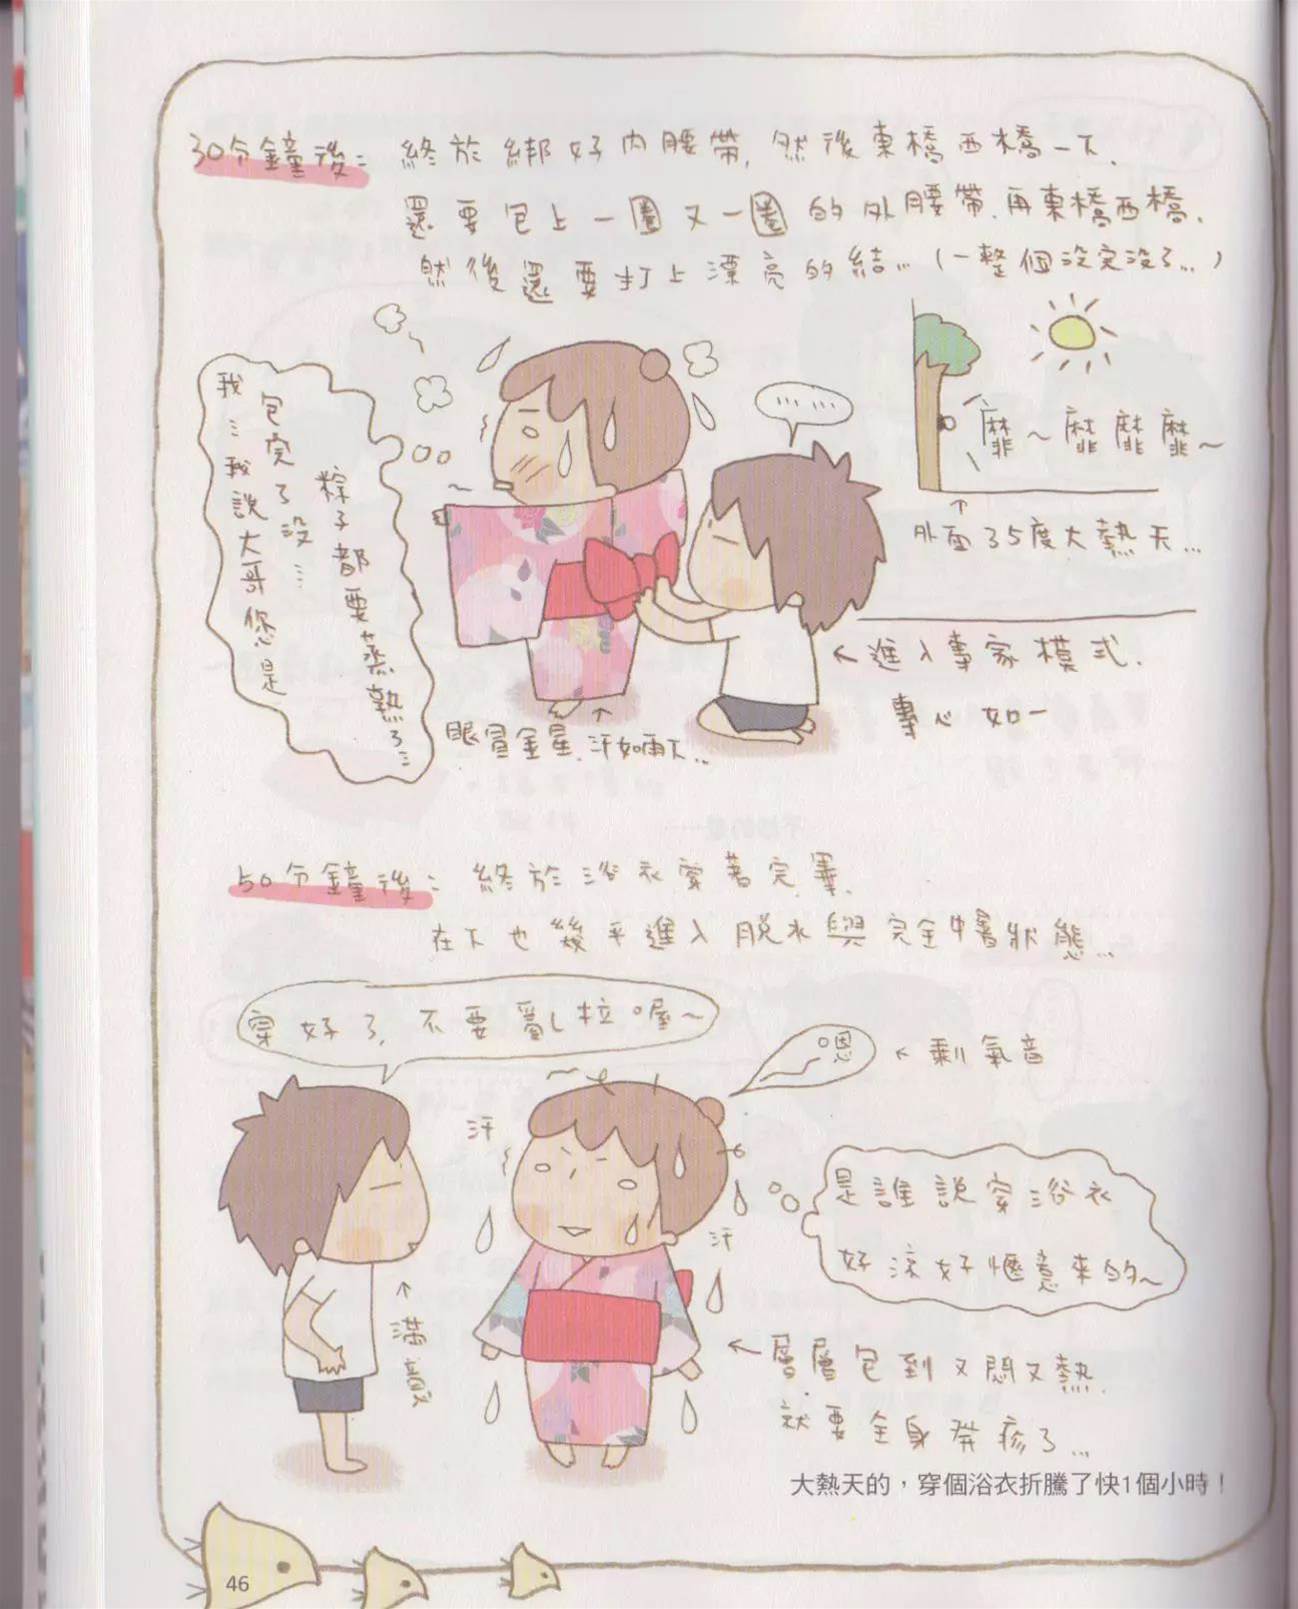 30分鐘後：終於綁好內腰帶，然後東橋西橋一下，
還要包上一圈又一圈的外腰帶，再東橋西橋，
然後還要打上漂亮的結…（一整個沒完沒了…）
我…我說大哥您是
包完了沒…
粽子都要蒸熟了…
……
靡～靡靡靡～
外面35度大熱天…
←進入專家模式，
專心如一
眼冒金星，汗如雨下…
50分鐘後：終於浴衣穿著完畢，
在下也幾乎進入脫水與完全中暑狀態…
穿好了，不要亂拉喔～
嗯
←剩氣音
汗
汗
是誰說穿浴衣
好涼好愜意來的～
滿意
←層層包到又悶又熱，
就要全身發疹了…
大熱天的，穿個浴衣折騰了快1個小時！
46